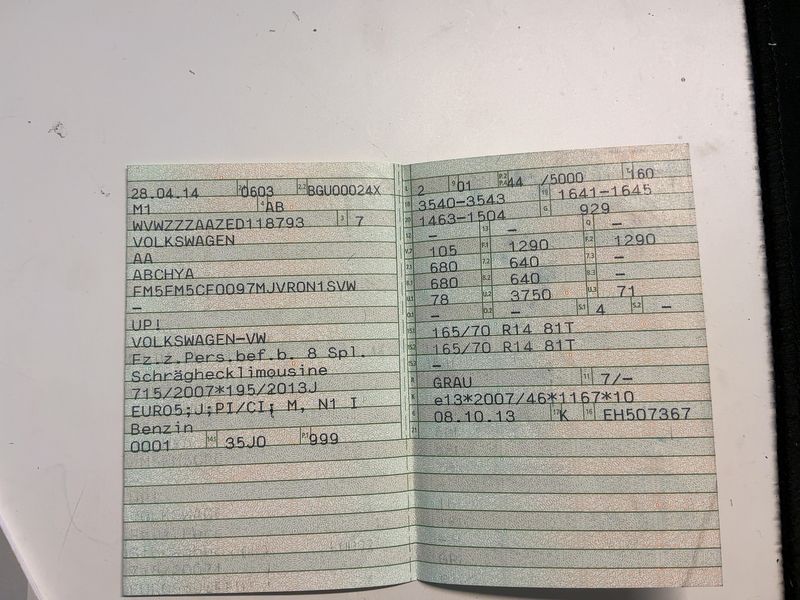 28.04.14 0603 BGU00024X
M1 AB
WVWZZZAAZED118793 7
VOLKSWAGEN
AA
ABCHYA
FM5FM5CF0097MJVR0N1SVW
–
UP!
VOLKSWAGEN-VW
Fz.z.Pers.bef.b. 8 Spl.
Schräghecklimousine
715/2007*195/2013J
EURO5;J;PI/CI; M, N1 I
Benzin
0001 35J0 999
2 01 44 /5000 160
3540-3543 1641-1645
1463-1504 929
– – –
105 1290 1290
680 640 –
680 640 –
78 3750 71
– – 4 –
165/70 R14 81T
165/70 R14 81T
–
GRAU 7/–
e13*2007/46*1167*10
08.10.13 K EH507367